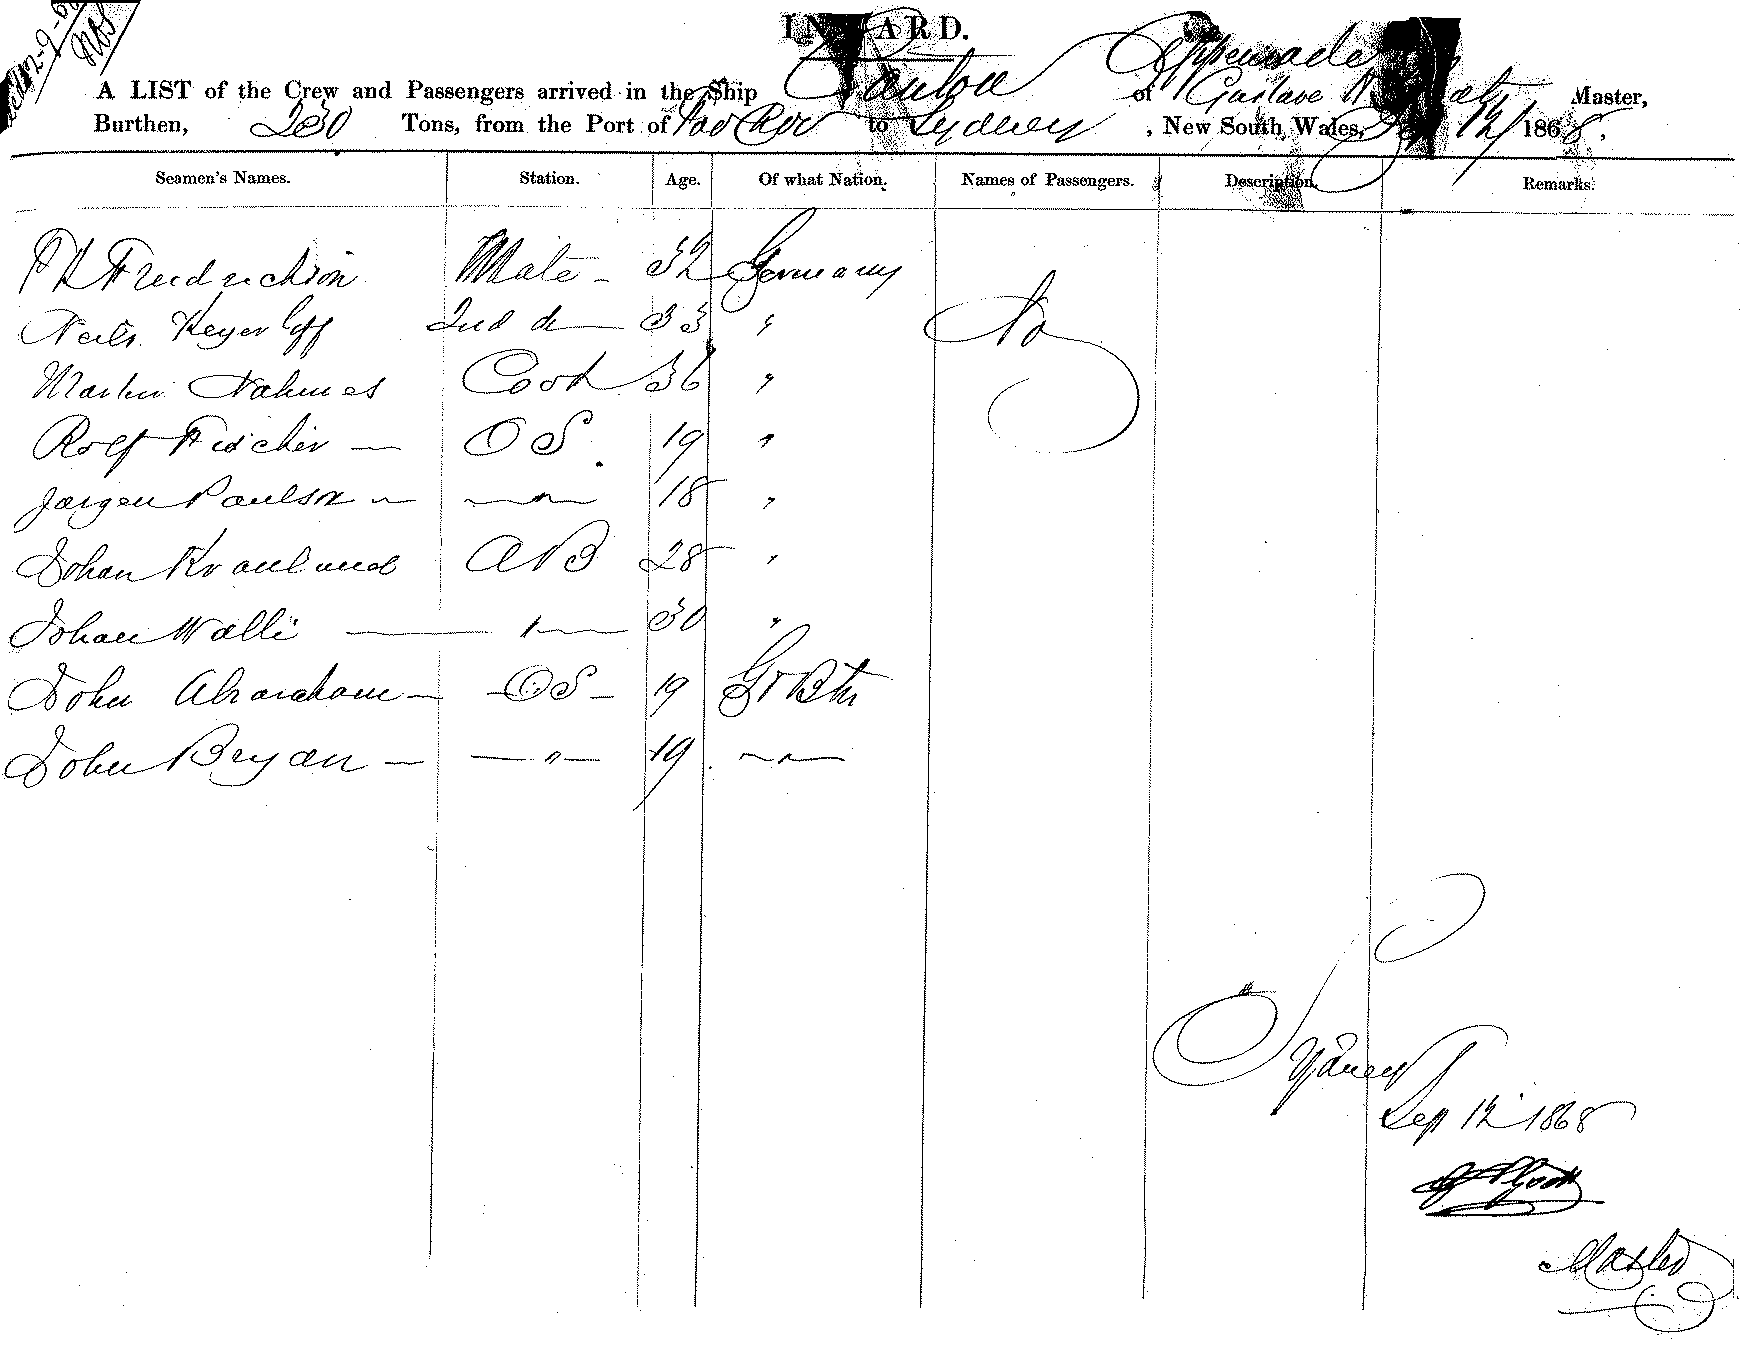 INWARD.
A LIST of the Crew and Passengers arrived in the Ship Canton of Appenrade Gustave Master,
Burthen, 230 Tons, from the Port of Foo Chow to Sydney, New South Wales, Sep 12 1868.
Seamen's Names. Station. Age. Of what Nation. Names of Passengers. Description. Remarks.
Mate - 32 Germany
Neils 2nd do 33 " No
Martin Nahmes Cook 36 "
Rolf Fischer — OS. 19 "
Jorgen Paulson — — " — 18 "
Johan 28 "
Johan Walli — " — 30 "
John Abraham — - OS - 19 Gr Btn
John Bryan — — " — 19 — " —
Sydney
Sep 12 1868
Master